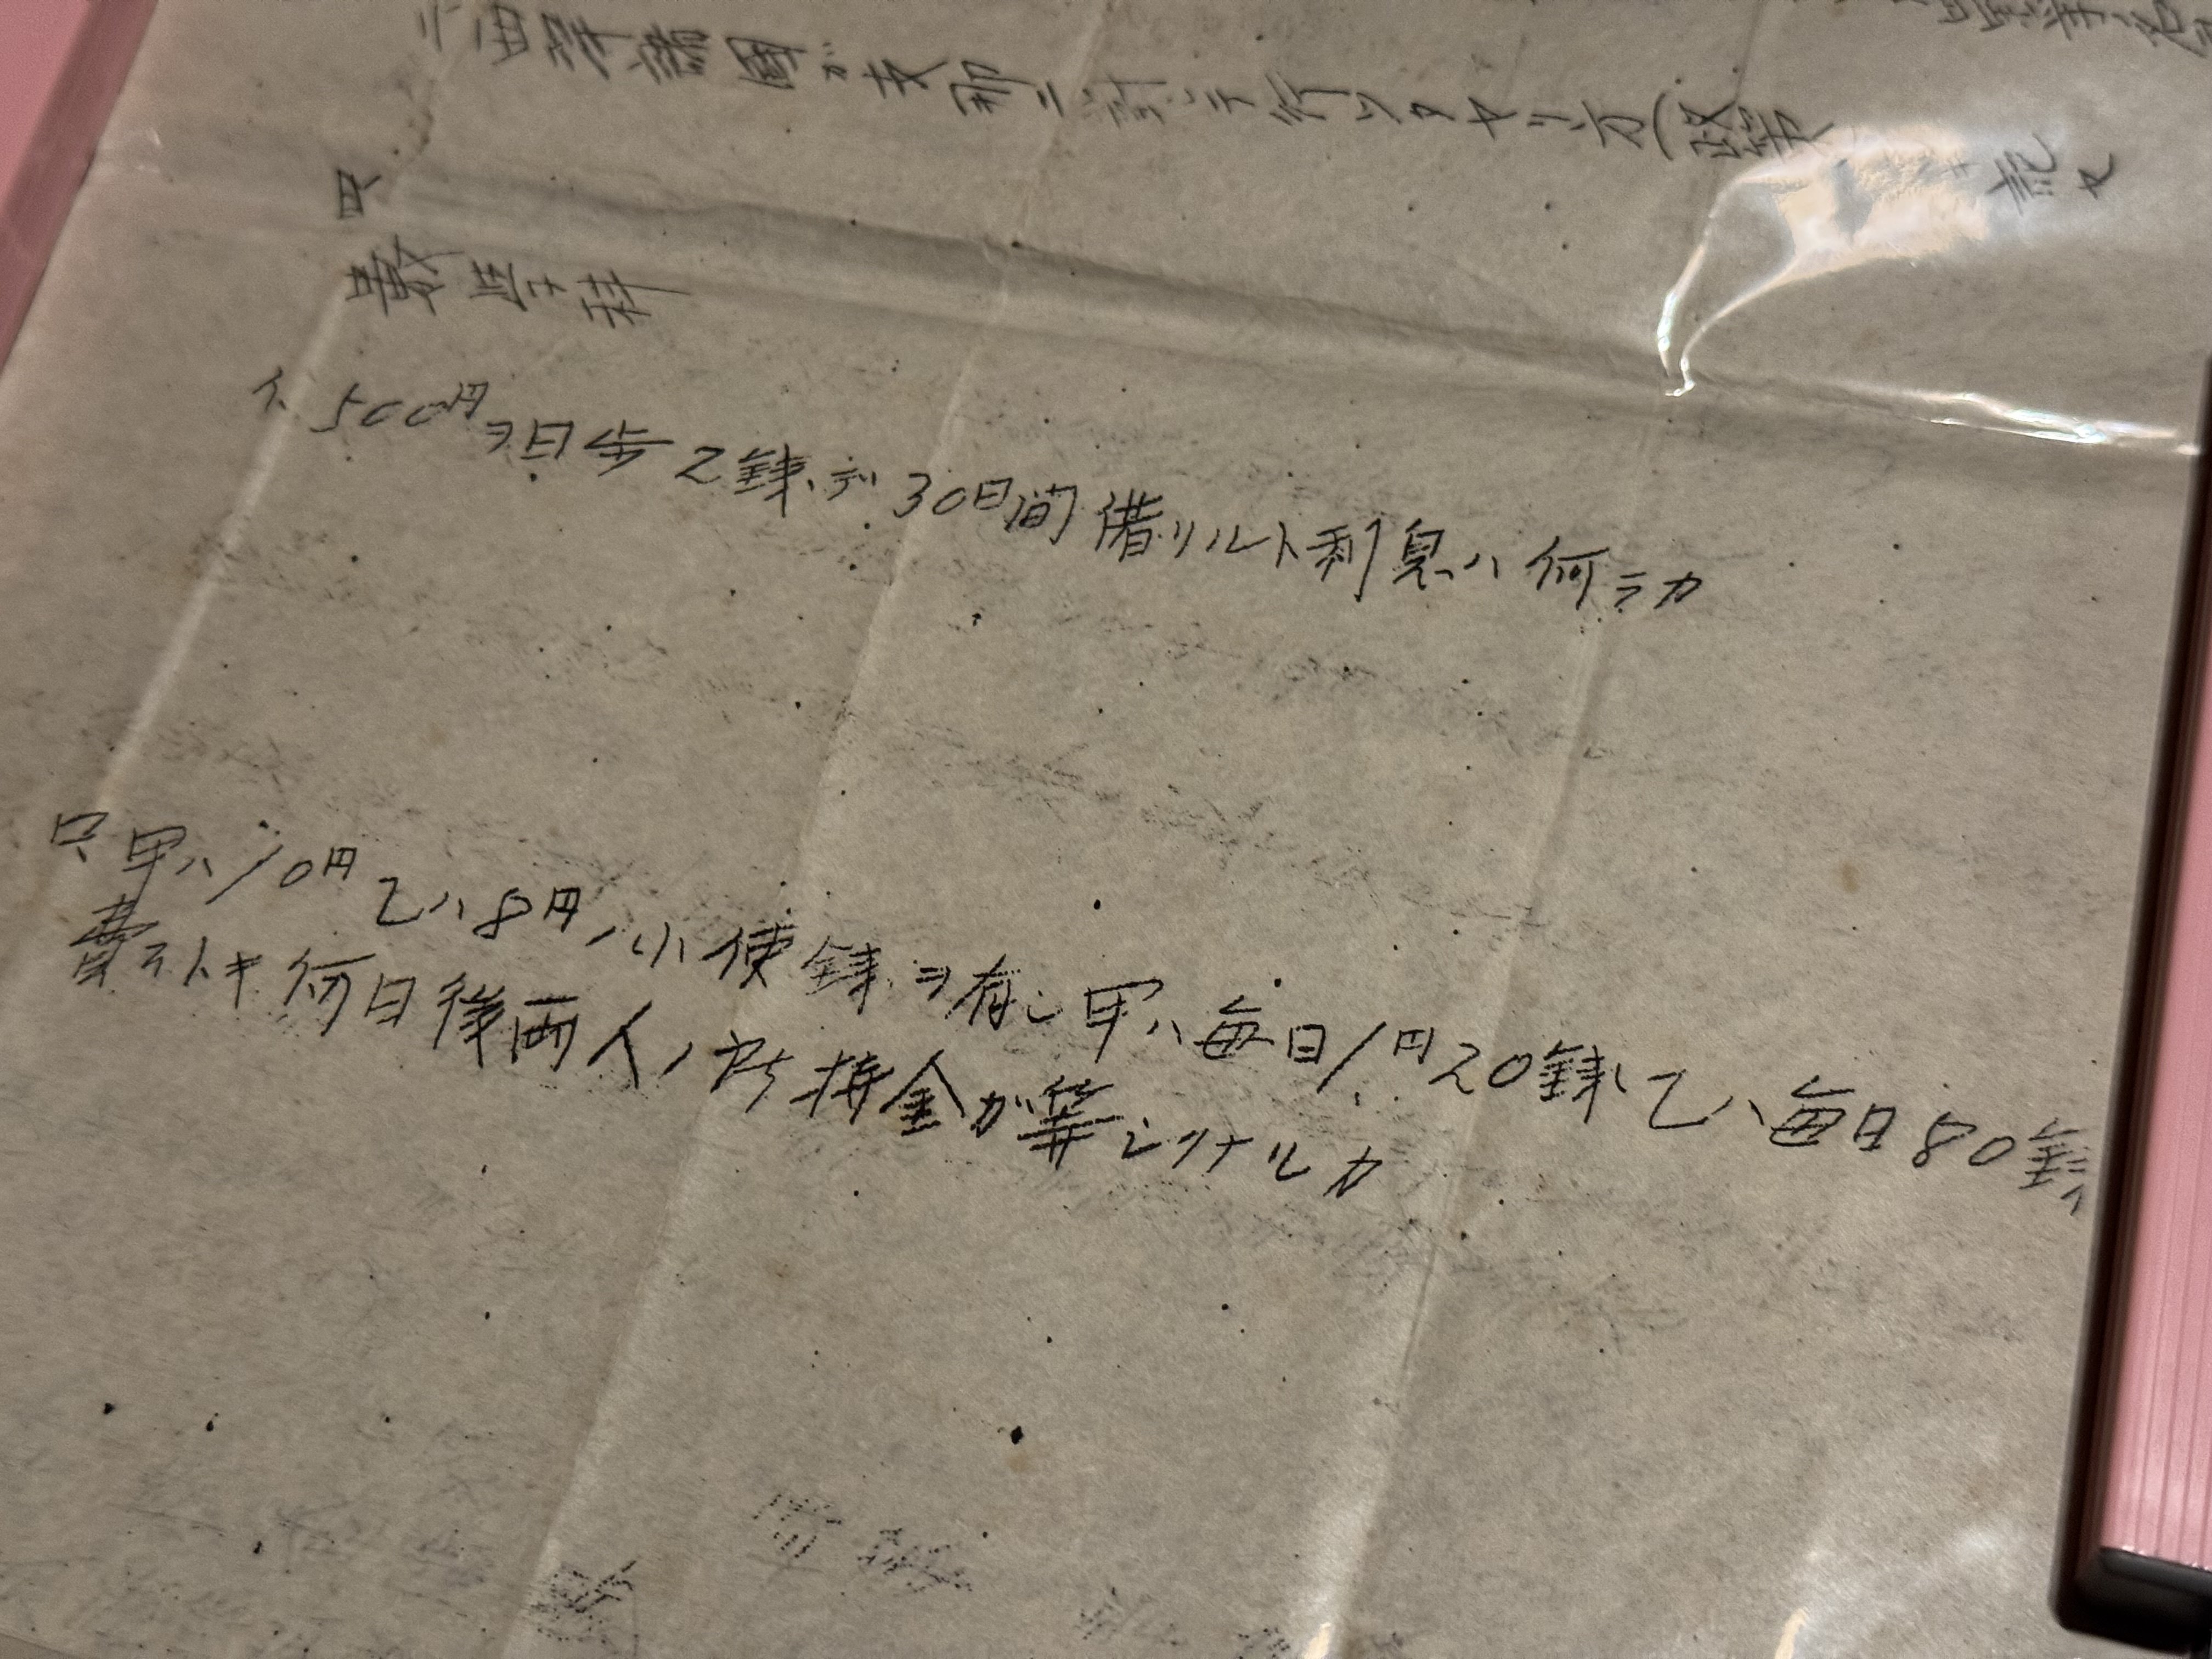 諸国ガ支那ニ対シテ行ツタヤリ方(政策 記セ
四
数学科
イ、500円ヲ日歩2銭デ30日間借リルト利息ハ何ニナルカ
ロ、甲ハ10円乙ハ8円ノ小使銭ヲ有シ甲ハ毎日1円20銭乙ハ毎日80銭
費ストキ何日後両人ノ所持金ガ等シクナルカ